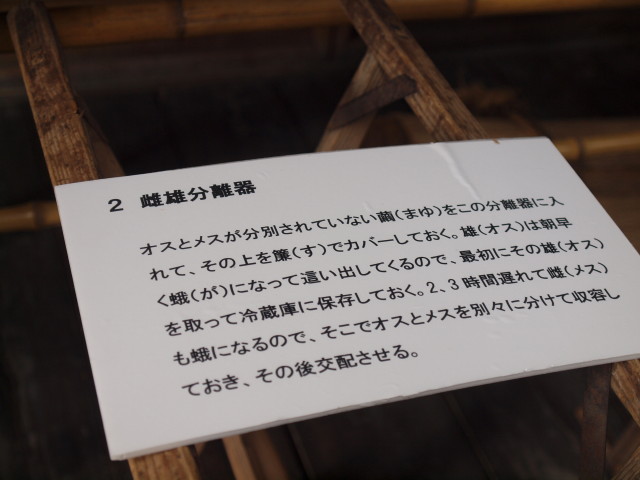 2 雌雄分離器
オスとメスが分別されていない繭(まゆ)をこの分離器に入
れて、その上を簾(す)でカバーしておく。雄(オス)は朝早
く蛾(が)になって這い出してくるので、最初にその雄(オス)
を取って冷蔵庫に保存しておく。2、3時間遅れて雌(メス)
も蛾になるので、そこでオスとメスを別々に分けて収容し
ておき、その後交配させる。